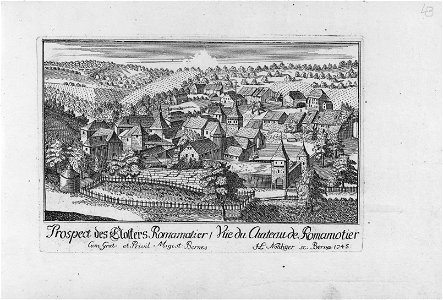 43
Prospect des Closters Romamotier / Vüe du Chateau de Romamotier
Cum Grat et Privil. Magist Bernes JL Nöthiger sc. Bernæ 1745